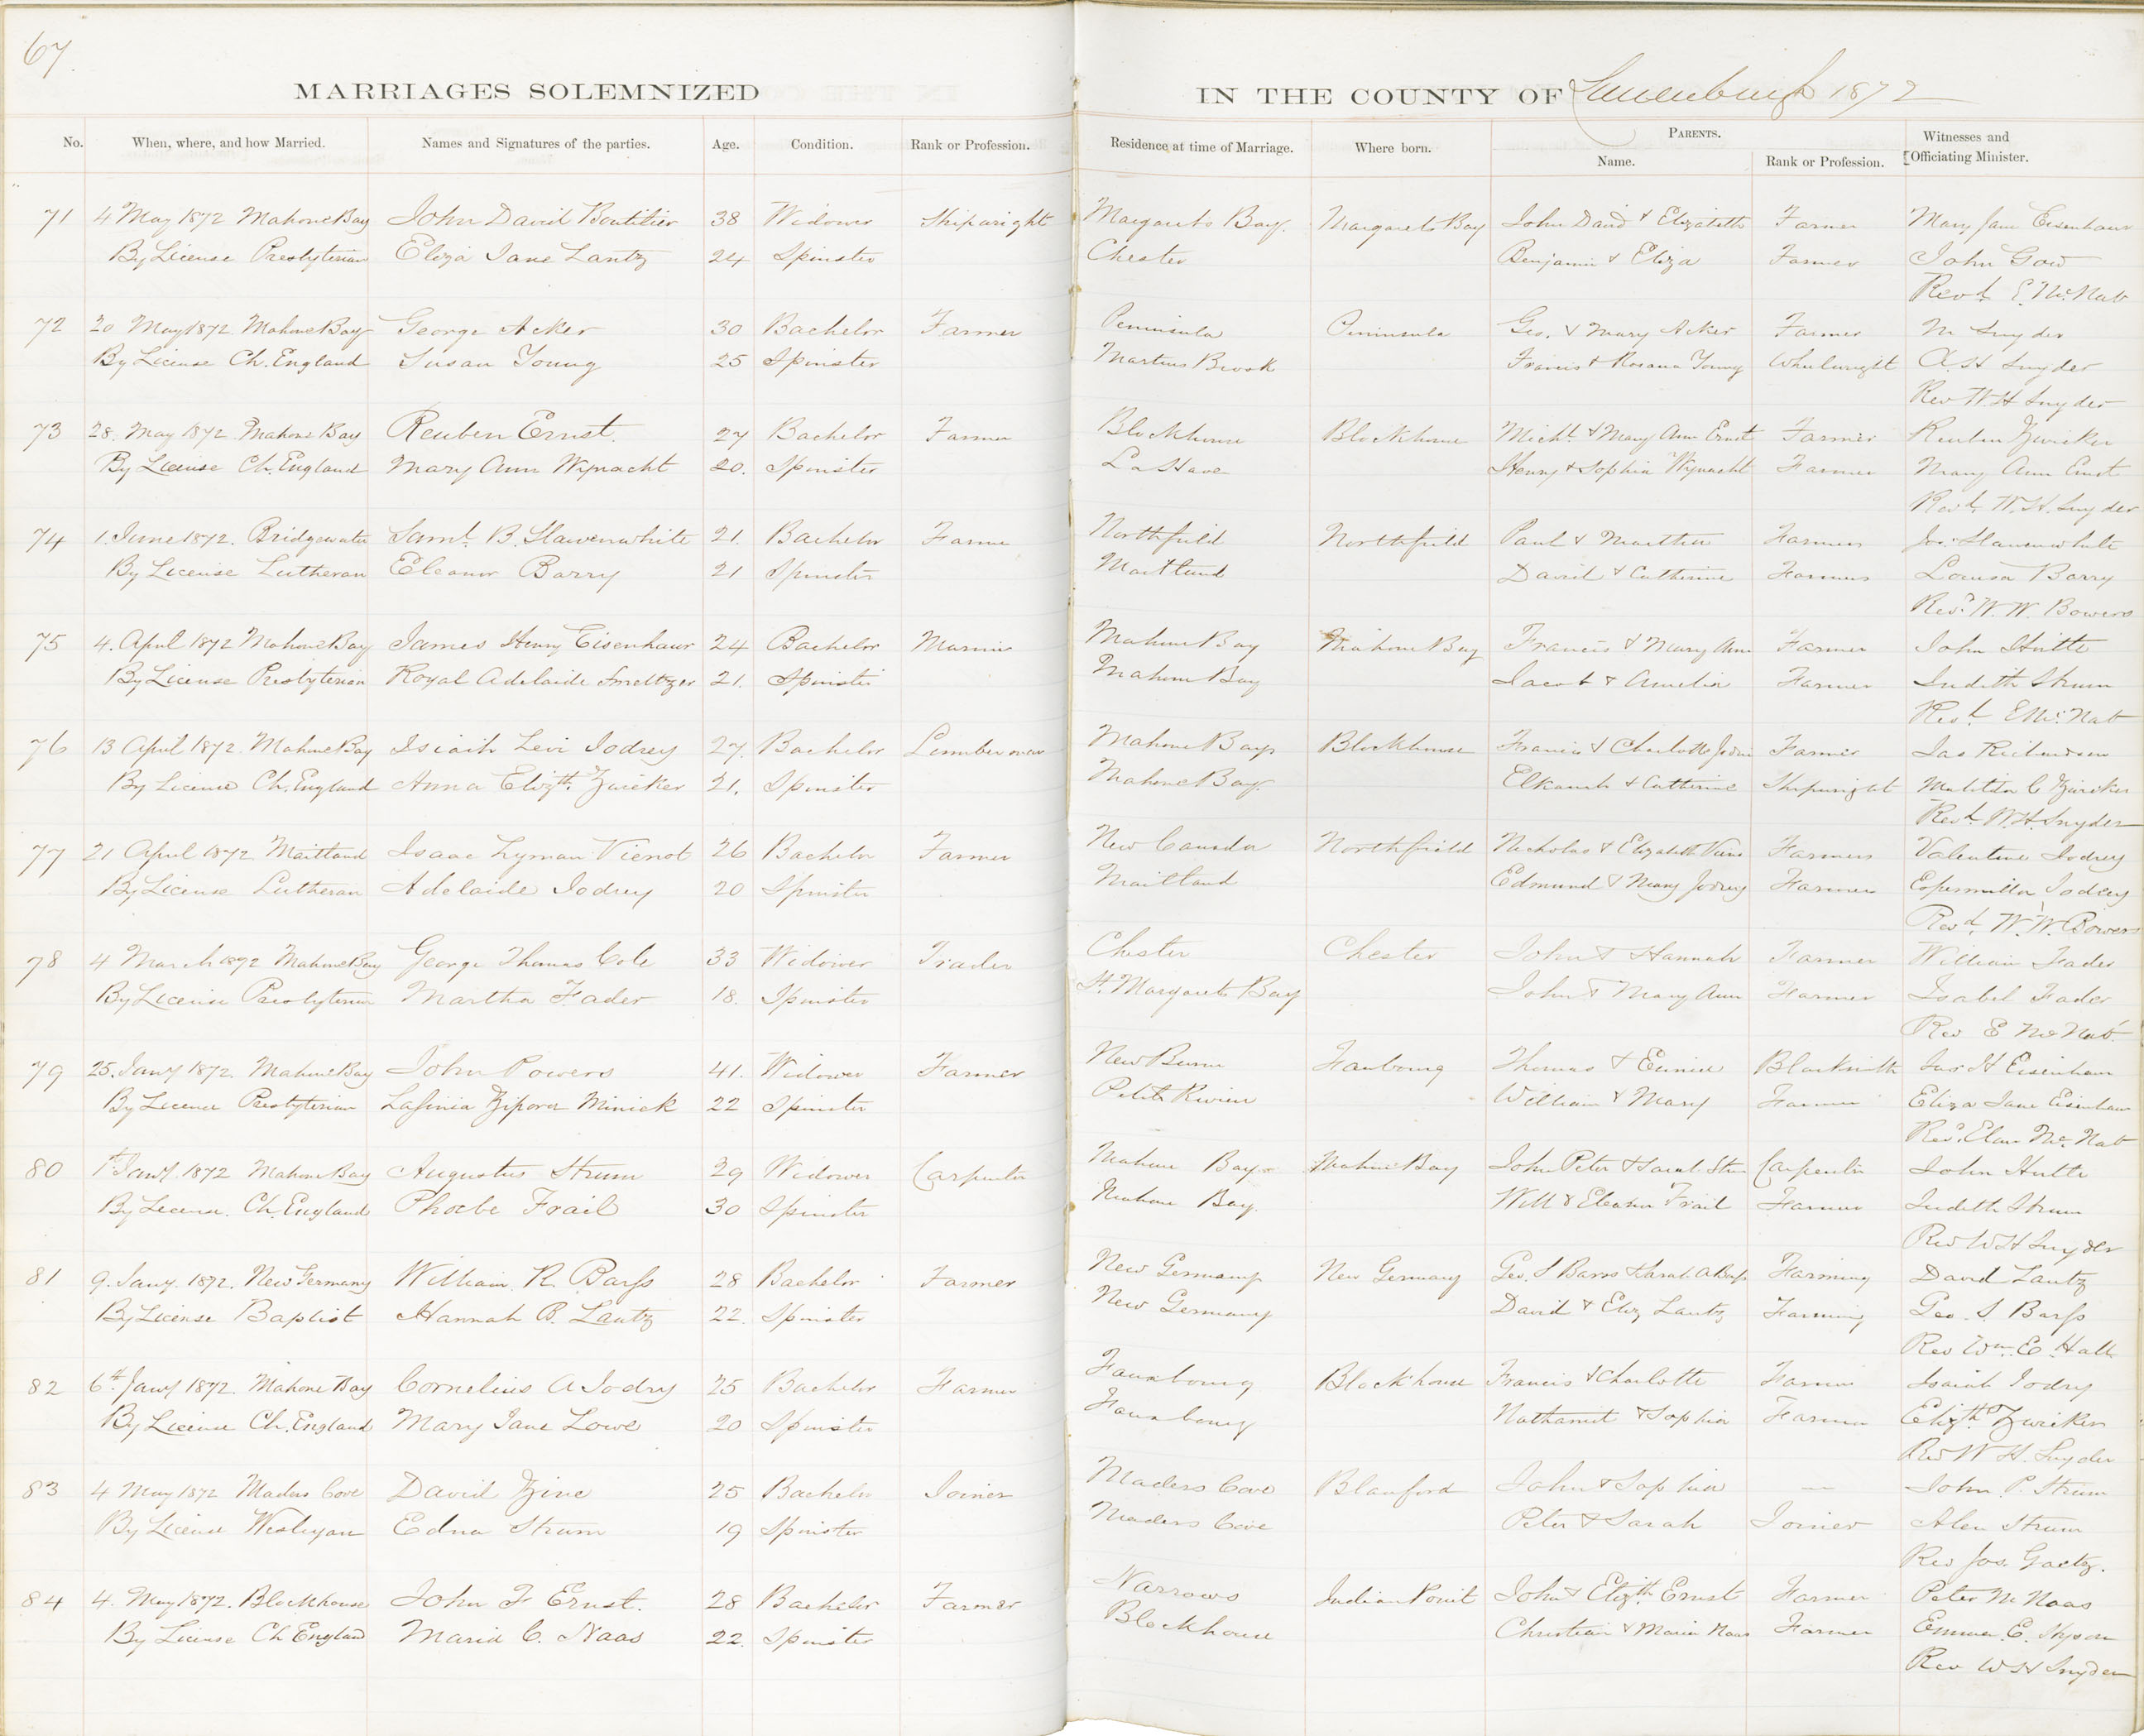 67
MARRIAGES SOLEMNIZED IN THE COUNTY OF Lunenburgh 1872
No. When, where, and how Married. Names and Signatures of the parties. Age. Condition. Rank or Profession. Residence at time of Marriage. Where born. PARENTS. Name. Rank or Profession. Witnesses and Officiating Minister.
71 4 May 1872 Mahone Bay John David Boutilier 38 Widower Shipwright Margarets Bay. Margarets Bay John David & Elizabeth Farmer Mary Jane Eisenhaur
By License Presbyterian Eliza Jane Lantz 24 Spinster Chester Benjamin & Eliza Farmer John Gow
Revd. E. McNab
72 20 May 1872 Mahone Bay George Acker 30 Bachelor Farmer Peninsula Peninsula Geo. & Mary Acker Farmer M Snyder
By License Ch. England Susan Young 25 Spinster Martins Brook Francis & Rosana Young Wheelwright A H Snyder
Rev W. H Snyder
73 28. May 1872. Mahone Bay Reuben Ernst. 27 Bachelor Farmer Blockhouse Blockhouse Michl. & Mary Ann Ernst Farmer Reuben Zwicker
By License Ch. England Mary Ann Wynacht 20. Spinster LaHave Henry & Sophia Wynacht Farmer Mary Ann Ernst
Revd. W. H. Snyder
74 1. June 1872. Bridgewater Saml. B. Slawenwhite 21. Bachelor Farmer Northfield Northfield Paul & Martha Farmer Jas. Slawenwhite
By License Lutheran Eleanor Barry 21 Spinster Maitland David & Catherine Farmer Louisa Barry
Revd. W. W. Bowers
75 4. April 1872 Mahone Bay James Henry Eisenhaur 24 Bachelor Mariner Mahone Bay Mahone Bay Francis & Mary Ann Farmer John Hutte
By License Presbyterian Royal Adelaide Smeltzer 21. Spinster Mahone Bay Jacob & Amelia Farmer Judith Strum
Revd. E McNab
76 13 April 1872. Mahone Bay Isiaih Levi Jodrey 27. Bachelor Lumberman Mahone Bay Blockhouse Francis & Charlotte Farmer Jas
By License Ch. England Anna Elizth. Zwicker 21. Spinster Mahone Bay. Elkanah & Catherine Shipwright Matilda C Zwicker
Revd. W. H. Snyder
77 21 April 1872 Maitland Isaac Lyman Vienot 26 Bachelor Farmer New Canada Northfield Nicholas & Elizabeth Farmer Valentine Jodrey
By License Lutheran Adelaide Jodrey 20 Spinster Maitland Edmund & Mary Jodrey Farmer Jodrey
Revd. W. W. Bowers
78 4 March 1872 Mahone Bay George Thomas Cole 33 Widower Trader Chester Chester John & Hannah Farmer William Fader
By License Presbyterian Martha Fader 18. Spinster St. Margarets Bay John & Mary Ann Farmer Isabel Fader
Rev E McNab
79 25. Jany 1872. Mahone Bay John Powers 41. Widower Farmer New Burn Faubourg Thomas & Eunice Blacksmith Jas H Eisenhaur
By License Presbyterian Lafinia Zipora Minick 22 Spinster Petite Riviere William & Mary Farmer Eliza Jane Eisenhaur
Revd. McNab
80 1st Jany. 1872 Mahone Bay Augustus Strum 29 Widower Carpenter Mahone Bay Mahone Bay John Peter & Sarah Carpenter John Hutte
By License. Ch. England Phoebe Frail 30 Spinster Mahone Bay. Will & Eleanor Frail Farmer Judith Strum
Rev W H Snyder
81 9. Jany. 1872. New Germany William R. Barss 28 Bachelor Farmer New Germany New Germany Geo. S Barss & Sarah A Farming David Lantz
By License Baptist Hannah B. Lantz 22. Spinster New Germany David & Eliz Lantz Farming Geo. S. Barss
Rev Wm. E. Hall
82 6th. Jany 1872. Mahone Bay Cornelius A Jodry 25 Bachelor Farmer Fauxbourg Blockhouse Francis & Charlotte Farmer Isaiah Jodry
By License Ch. England Mary Jane Lowe 20 Spinster Fauxbourg Nathaniel & Sophia Farmer Elizth. Zwicker
Rev W H. Snyder
83 4 May 1872 Maders Cove David Zinc 25 Bachelor Joiner Maders Cove Blanford John & Sophia — John P. Strum
By License Wesleyan Edna Strum 19 Spinster Maders Cove Peter & Sarah Joiner Alen Strum
Rev Jos. Gaetz.
84 4. May 1872. Blockhouse John F Ernst. 28 Bachelor Farmer Narrows Indian Point John & Elizth Ernst Farmer Peter M Naas
By License Ch England Maria C. Naas 22. Spinster Blockhouse Christian & Maria Naas Farmer Emma E. Hyson
Rev W H Snyder